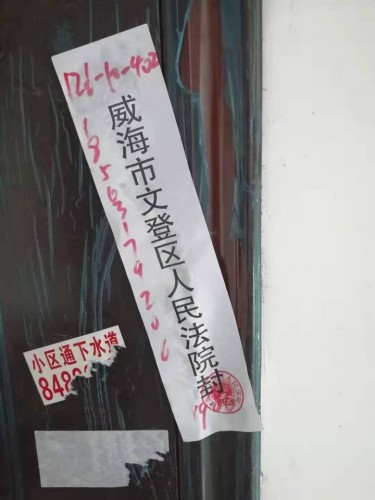 121-10-402
18563179206
威海市文登区人民法院封
19
小区通下水道
848